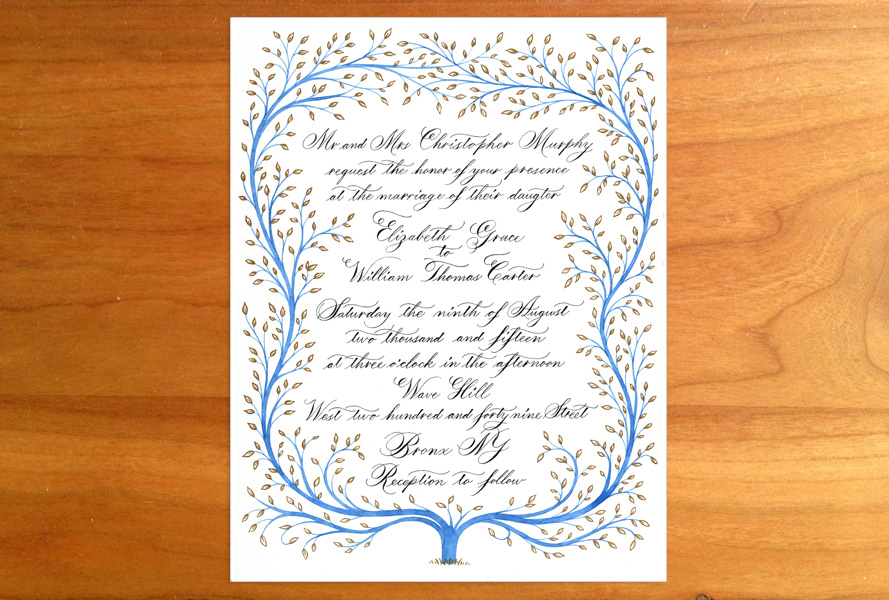 Mr. and Mrs Christopher Murphy
request the honor of your presence
at the marriage of their daugter
Elizabeth Grace
to
William Thomas Carter
Saturday the ninth of August
two thousand and fifteen
at three o'clock in the afternoon
Wave Hill
West two hundred and forty nine Street
Bronx NY
Reception to follow